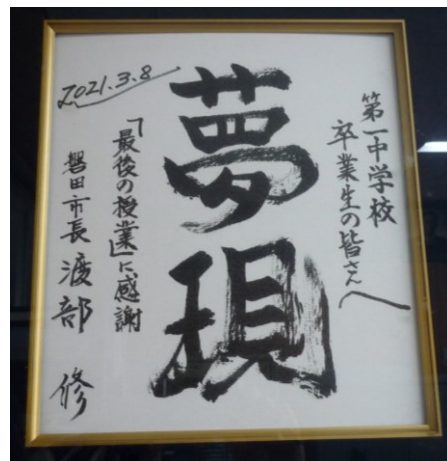 第一中学校
卒業生の皆さんへ
夢現
2021.3.8
「最後の授業」に感謝
磐田市長 渡部 修